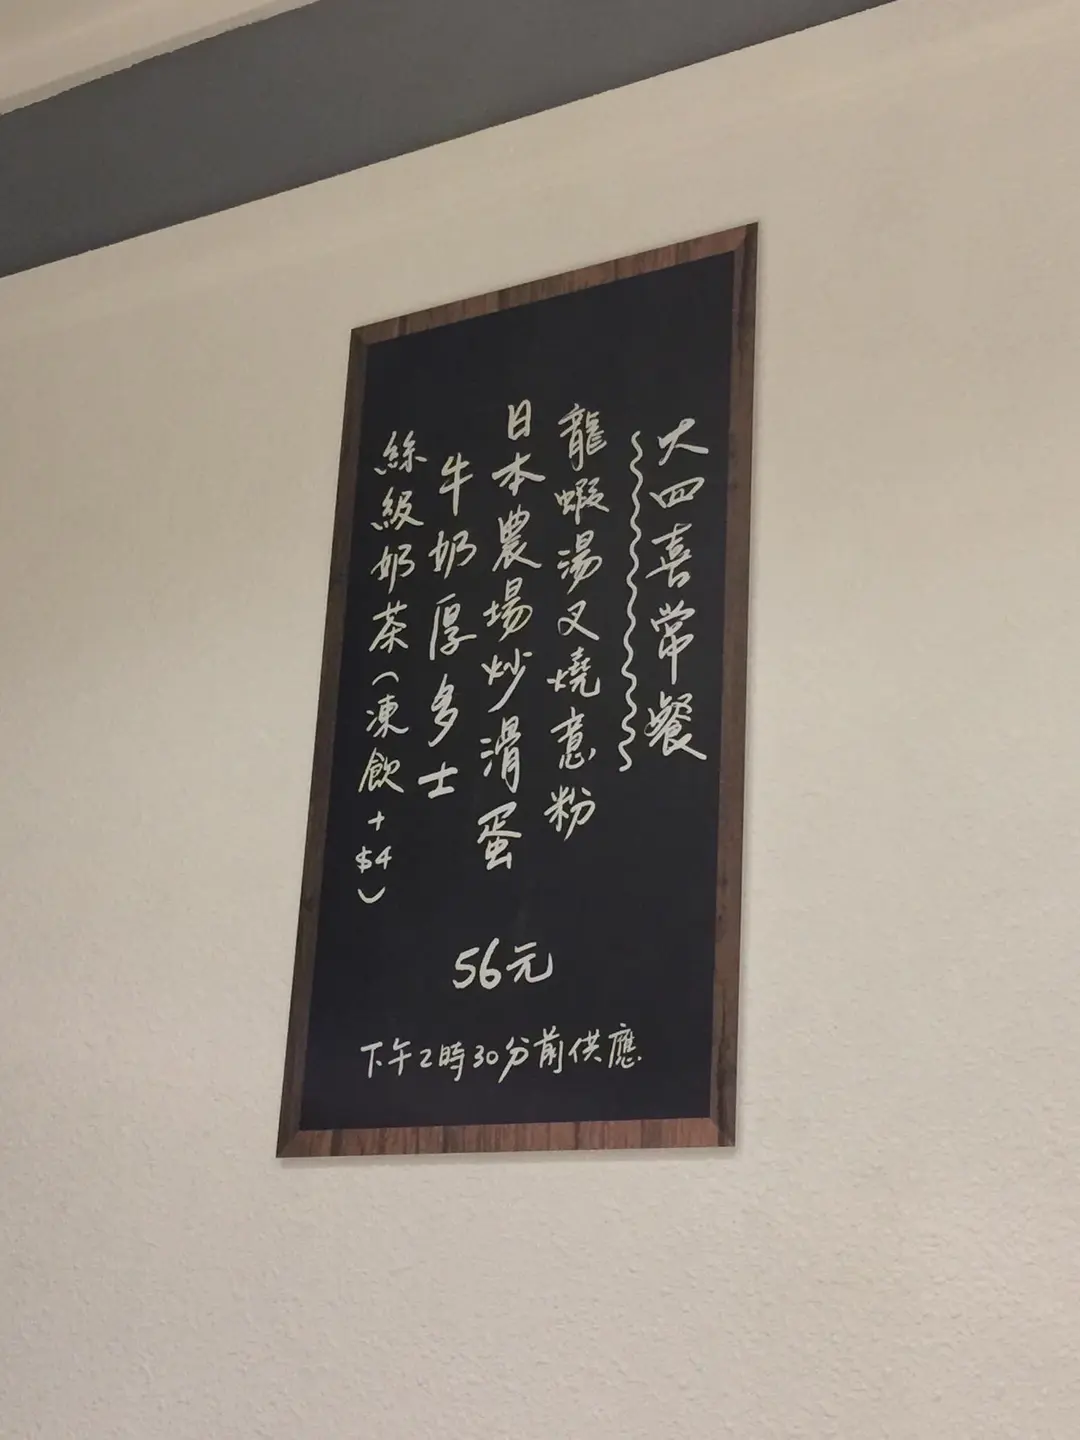 大四喜常餐
龍蝦湯叉燒意粉
日本農場炒滑蛋
牛奶厚多士
絲級奶茶(凍飲+$4)
56元
下午2時30分前供應